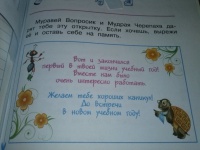 Муравей Вопросик и Мудрая Черепаха да-
рят тебе эту открытку. Если хочешь, вырежи
её и оставь себе на память.
Вот и закончился
первый в твоей жизни учебный год!
Вместе нам было
очень интересно работать.
Желаем тебе хороших каникул!
До встречи
в новом учебном году!